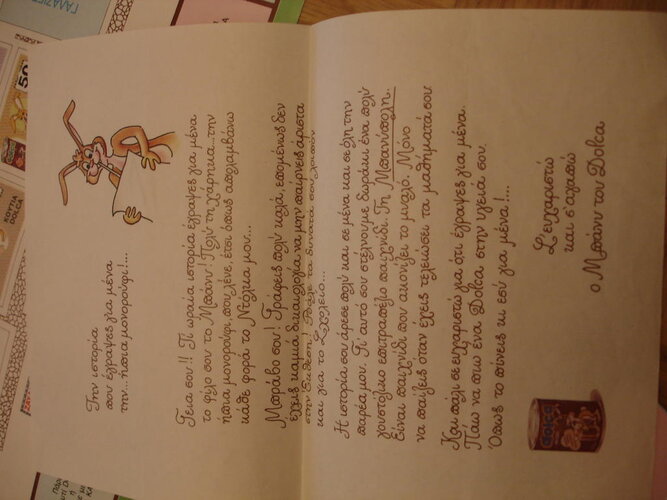 Την ιστορία
που έγραψες για μένα
την... ήπια μονορούφι!...
Γεια σου!! Τι ωραία ιστορία έγραψες για μένα
το φίλο σου το Μπάνυ! Πολύ τη χάρηκα... την
ήπια μονορούφι, που λένε, έτσι όπως απολαμβάνω
κάθε φορά το Ντόλκα μου...
Μπράβο σου! Γράφεις πολύ καλά, επομένως δεν
έχεις καμμιά δικαιολογία να μην παίρνεις άριστα
στην Έκθεση! Βάλε τα δυνατά σου λοιπόν
και για το Σχολείο...
Η ιστορία σου άρεσε πολύ και σε μένα και σε όλη την
παρέα μου. Γι' αυτό σου στέλνουμε δωράκι ένα πολύ
γουστόζικο επιτραπέζιο παιχνίδι. Τη Μπανύπολη.
Είναι παιχνίδι που ακονίζει το μυαλό. Μόνο
να παίζεις όταν έχεις τελειώσει τα μαθήματά σου
Και πάλι σε ευχαριστώ για ότι έγραψες για μένα.
Πάω να πιω ένα Dolca στην υγειά σου.
Όπως το πίνεις κι εσύ για μένα!...
Σ' ευχαριστώ
και σ' αγαπώ
ο Μπάνυ του Dolca
DOLCA
ΓΑΛΑΖΙΕΣ
50
ΚΟΥΤΙΑ
DOLCA